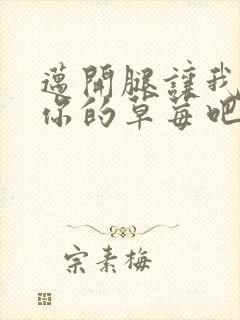 邁開腿讓我
你的草莓吧
宗素梅